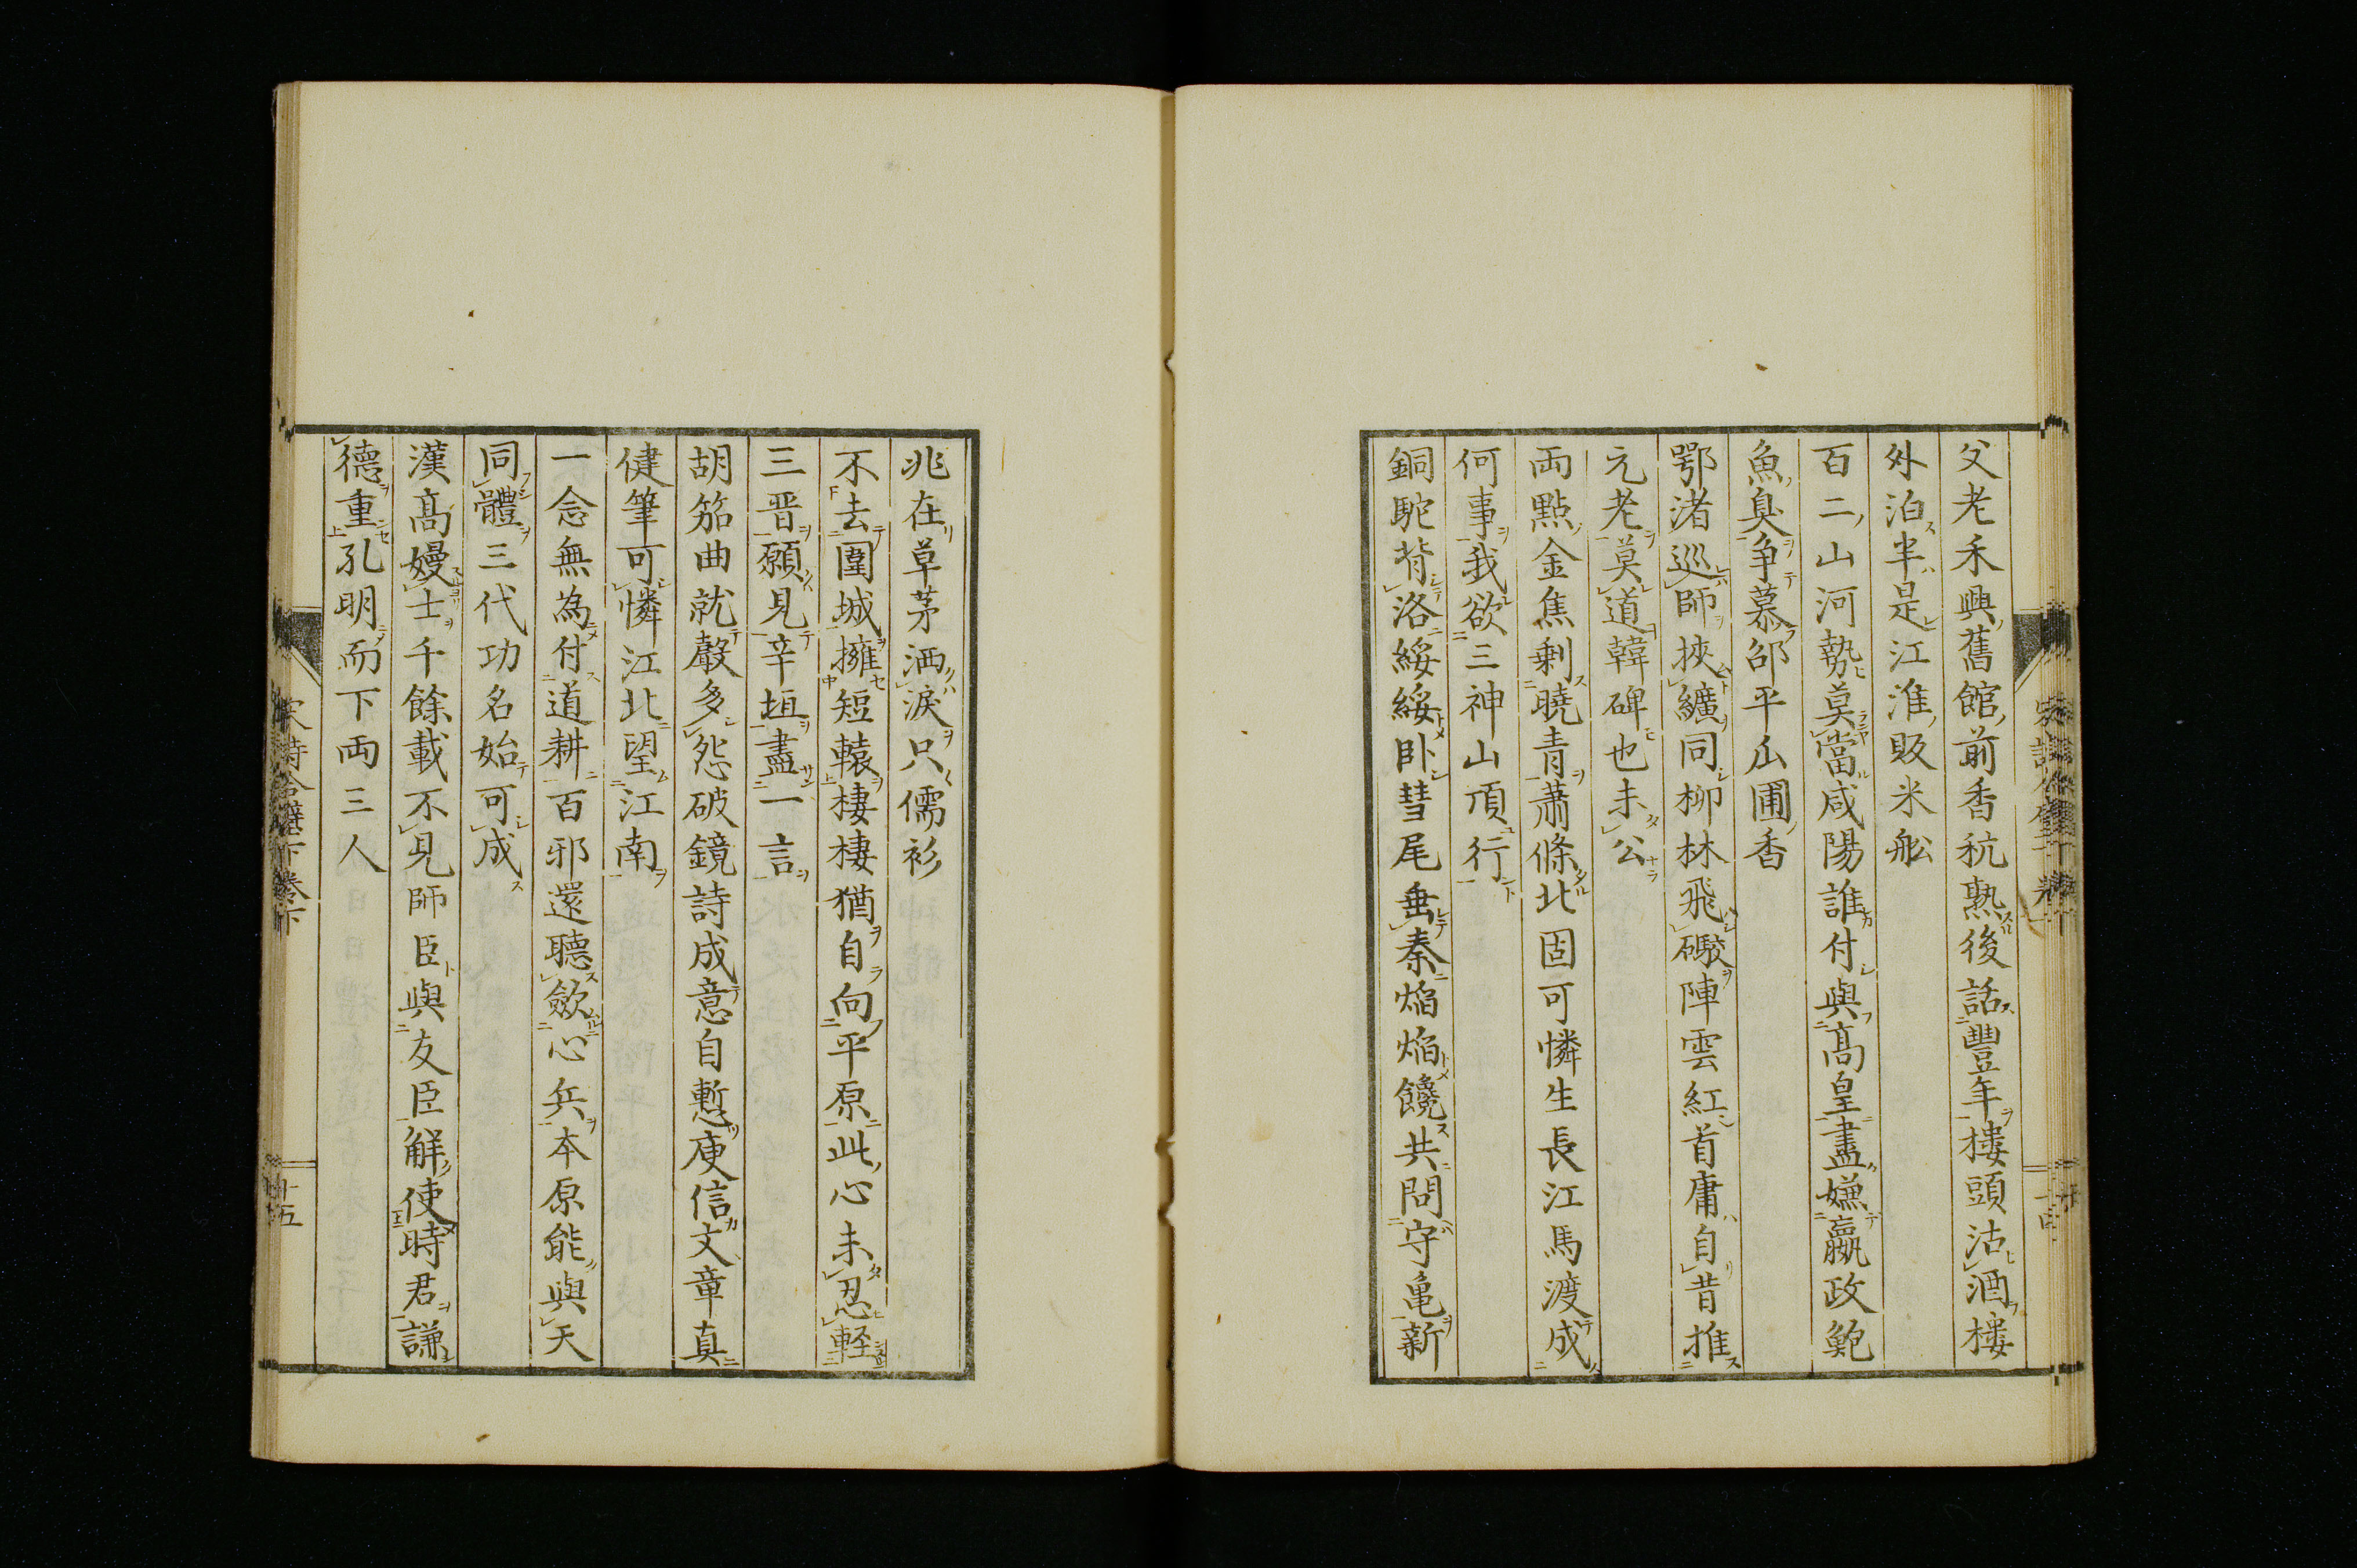 父老禾興舊館前香秔熟後話豐年樓頭沽酒樓
外泊半是江淮販米船
百二山河勢莫當咸陽誰付與高皇盡嫌嬴政鮑
魚臭争慕邵平瓜圃香
鄂渚巡師挾纊同柳林飛礮陣雲紅首庸自昔推
元老莫道韓碑也未公
両點金焦剰曉青蕭條北固可憐生長江馬渡成
何事我欲三神山頂行
銅駝背洛綏綏卧彗尾垂秦焔焔饞共問守亀新
兆在草茅洒淚只儒衫
不去圍城擁短轅棲棲猶自向平原此心未忍軽
三晋願見辛垣盡一言
胡笳曲就聲多怨破鏡詩成意自慙庾信文章真
健筆可憐江北望江南
一念無為付道耕百邪還聽歛心兵本原能與天
同體三代功名始可成
漢髙嫚士千餘載不見師臣與友臣解使時君謙
德重孔明而下両三人
十五